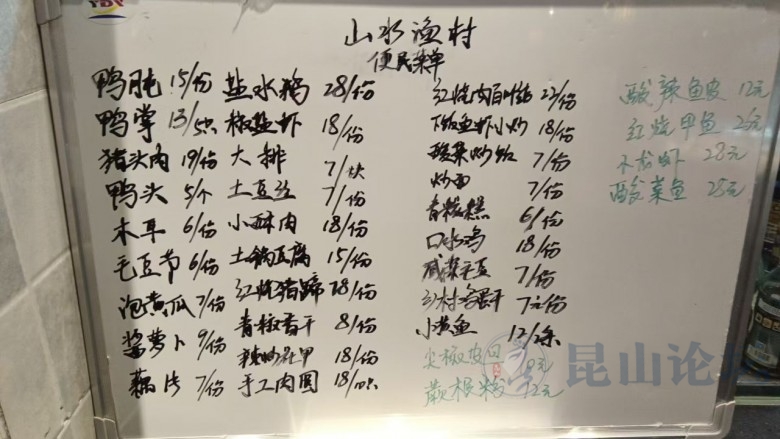 山水渔村
便民菜单
鸭肫 15/份
鸭掌 13/5只
猪头肉 19/份
鸭头 5/个
木耳 6/份
毛豆节 6/份
泡黄瓜 7/份
酱萝卜 9/份
藕片 7/份
盐水鹅 28/份
椒盐虾 18/份
大排 7/块
土豆丝 7/份
小酥肉 18/份
土锅豆腐 15/份
红烧猪蹄 28/份
青椒香干 8/份
辣炒花甲 18/份
手工肉圆 18/4只
红烧肉百叶结 22/份
下饭鱼虾小炒 18/份
酸菜炒饭 7/份
炒面 7/份
青椒糕 6/份
口水鸡 18/份
咸菜毛豆 7/份
乡村鸡蛋干 7元/份
小黄鱼 12/条
尖椒皮日 9元
蕨根粉 12元
酸辣鱼皮 12元
红烧甲鱼
小龙虾 28元
酸菜鱼 25元
昆山论